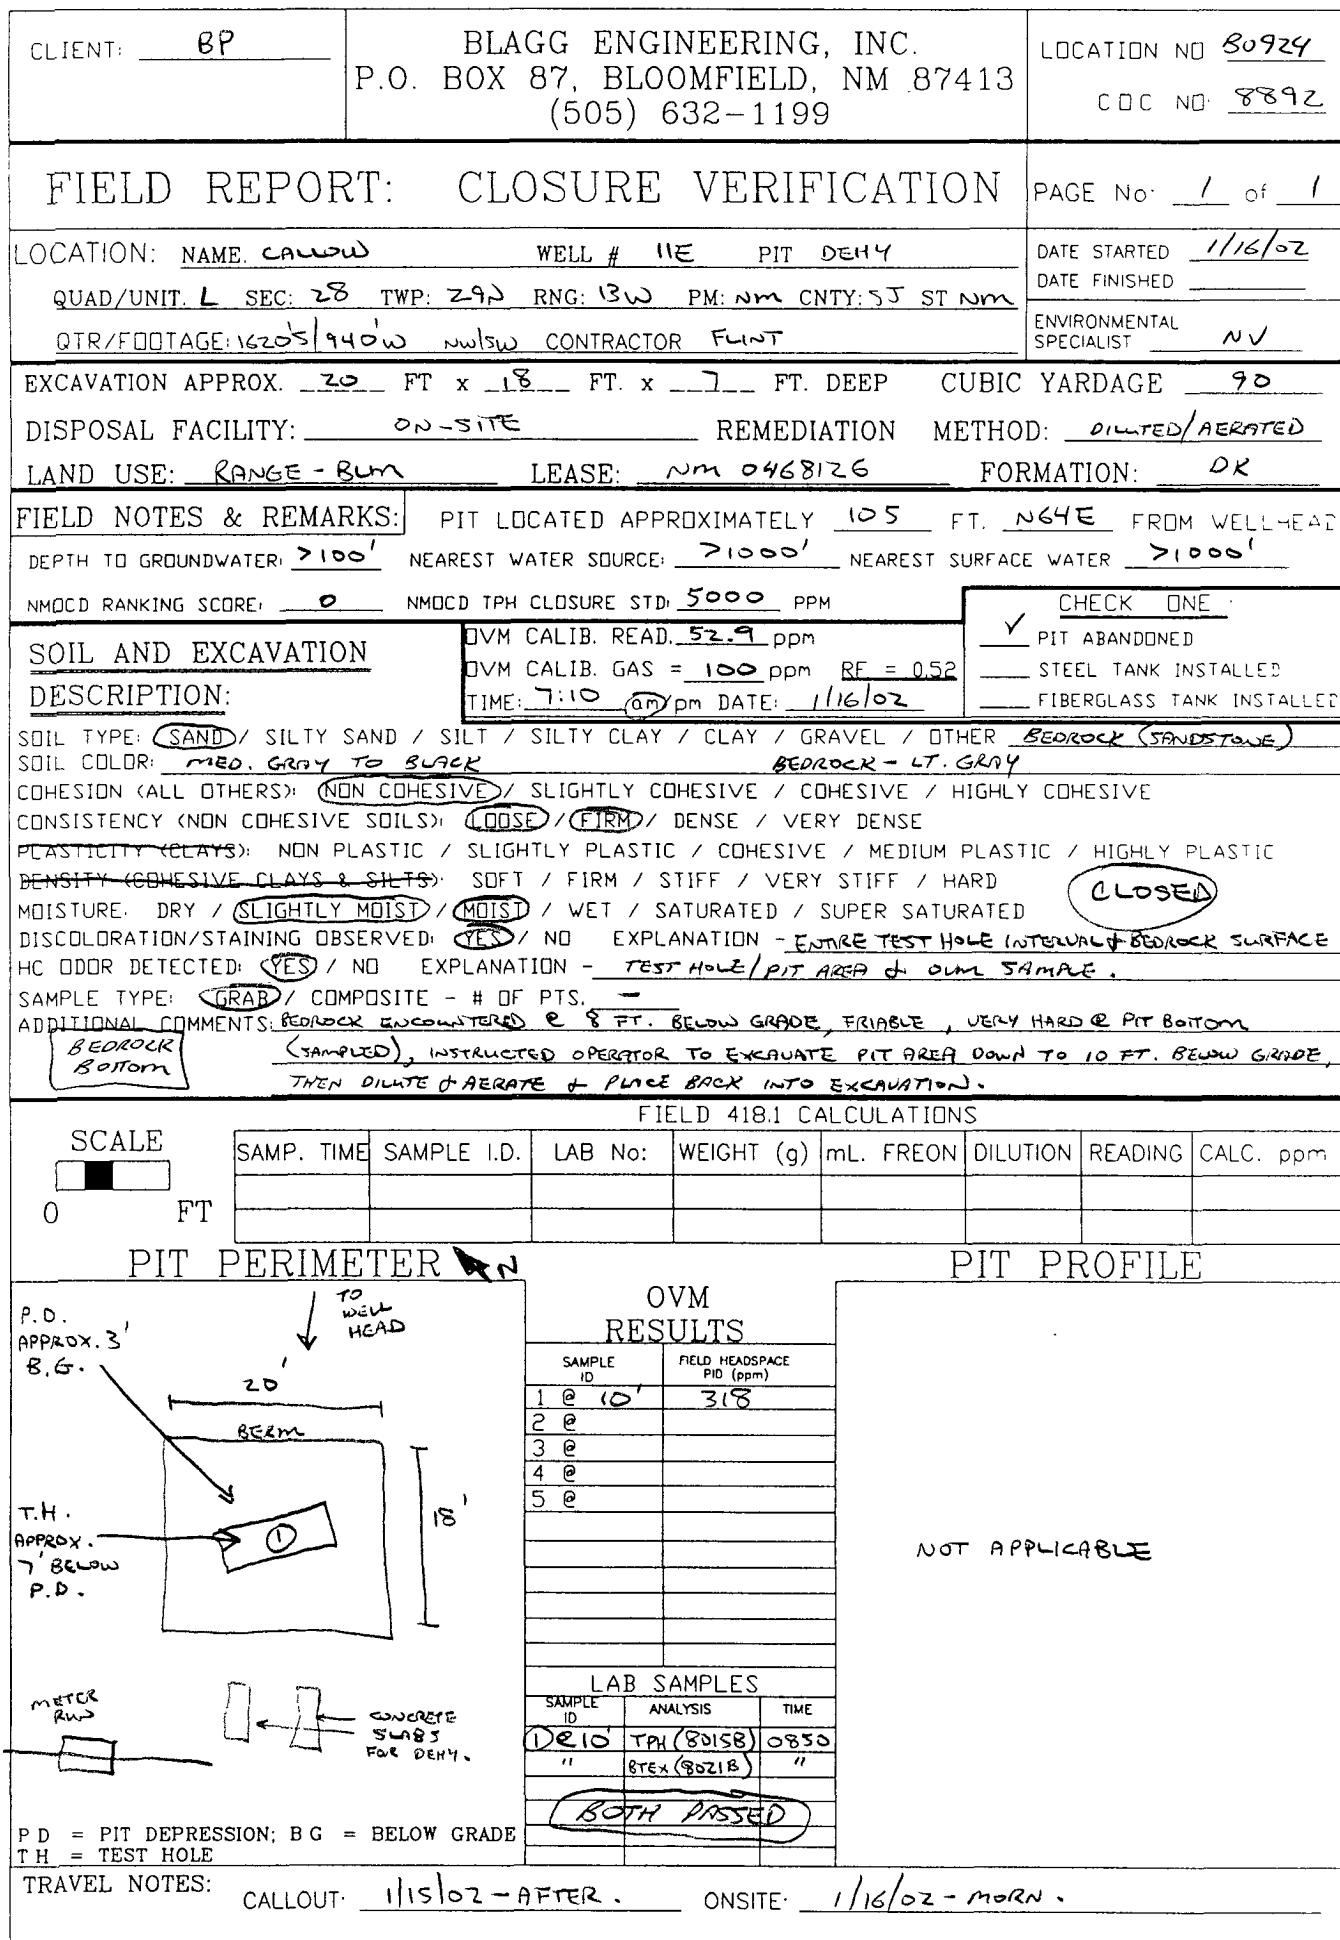 CLIENT: BP
BLAGG ENGINEERING, INC.
P.O. BOX 87, BLOOMFIELD, NM 87413
(505) 632-1199
LOCATION NO B0924
COC NO: 8892
FIELD REPORT: CLOSURE VERIFICATION
PAGE No: 1 of 1
LOCATION: NAME. CALLOW WELL # 11E PIT DEHY
QUAD/UNIT. L SEC: 28 TWP: 29N RNG: 13W PM: NM CNTY: SJ ST NM
QTR/FOOTAGE: 1620'S/940'W NW/SW CONTRACTOR FLINT
DATE STARTED 1/16/02
DATE FINISHED
ENVIRONMENTAL
SPECIALIST NV
EXCAVATION APPROX. 20 FT x 18 FT. x 7 FT. DEEP CUBIC YARDAGE 90
DISPOSAL FACILITY: ON-SITE REMEDIATION METHOD: DILUTED/AERATED
LAND USE: RANGE - BLM LEASE: NM 0468126 FORMATION: DK
FIELD NOTES & REMARKS: PIT LOCATED APPROXIMATELY 105 FT. N64E FROM WELLHEAD
DEPTH TO GROUNDWATER: >100' NEAREST WATER SOURCE: >1000' NEAREST SURFACE WATER >1000'
NMOCD RANKING SCORE: 0 NMOCD TPH CLOSURE STD: 5000 PPM
CHECK ONE
✓ PIT ABANDONED
STEEL TANK INSTALLED
FIBERGLASS TANK INSTALLED
SOIL AND EXCAVATION
DESCRIPTION:
OVM CALIB. READ. 52.9 ppm
OVM CALIB. GAS = 100 ppm RF = 0.52
TIME: 7:10 am/pm DATE: 1/16/02
SOIL TYPE: SAND / SILTY SAND / SILT / SILTY CLAY / CLAY / GRAVEL / OTHER BEDROCK (SANDSTONE)
SOIL COLOR: MED. GRAY TO BLACK BEDROCK - LT. GRAY
COHESION (ALL OTHERS): NON COHESIVE / SLIGHTLY COHESIVE / COHESIVE / HIGHLY COHESIVE
CONSISTENCY (NON COHESIVE SOILS): LOOSE / FIRM / DENSE / VERY DENSE
PLASTICITY (CLAYS): NON PLASTIC / SLIGHTLY PLASTIC / COHESIVE / MEDIUM PLASTIC / HIGHLY PLASTIC
DENSITY (COHESIVE CLAYS & SILTS): SOFT / FIRM / STIFF / VERY STIFF / HARD
CLOSED
MOISTURE. DRY / SLIGHTLY MOIST / MOIST / WET / SATURATED / SUPER SATURATED
DISCOLORATION/STAINING OBSERVED: YES / NO EXPLANATION - ENTIRE TEST HOLE INTERVAL & BEDROCK SURFACE
HC ODOR DETECTED: YES / NO EXPLANATION - TEST HOLE/PIT AREA & OVM SAMPLE.
SAMPLE TYPE: GRAB / COMPOSITE - # OF PTS. -
ADDITIONAL COMMENTS: BEDROCK ENCOUNTERED @ 8 FT. BELOW GRADE, FRIABLE, VERY HARD @ PIT BOTTOM
(SAMPLED), INSTRUCTED OPERATOR TO EXCAVATE PIT AREA DOWN TO 10 FT. BELOW GRADE,
THEN DILUTE & AERATE & PLACE BACK INTO EXCAVATION.
BEDROCK
BOTTOM
FIELD 418.1 CALCULATIONS
SCALE
0 FT
SAMP. TIME SAMPLE I.D. LAB No: WEIGHT (g) mL. FREON DILUTION READING CALC. ppm
PIT PERIMETER N
PIT PROFILE
TO
WELL
HEAD
P.D.
APPROX. 3'
B.G.
20'
BERM
18'
T.H.
APPROX.
7' BELOW
P.D.
1
METER
RUN
CONCRETE
SLABS
FOR DEHY.
PD = PIT DEPRESSION; BG = BELOW GRADE
TH = TEST HOLE
OVM
RESULTS
SAMPLE ID FIELD HEADSPACE PID (ppm)
1 @ 10' 318
2 @
3 @
4 @
5 @
LAB SAMPLES
SAMPLE ID ANALYSIS TIME
1 @ 10' TPH (8015B) 0850
" BTEX (8021B) "
BOTH PASSED
NOT APPLICABLE
TRAVEL NOTES: CALLOUT: 1/15/02 - AFTER. ONSITE: 1/16/02 - MORN.